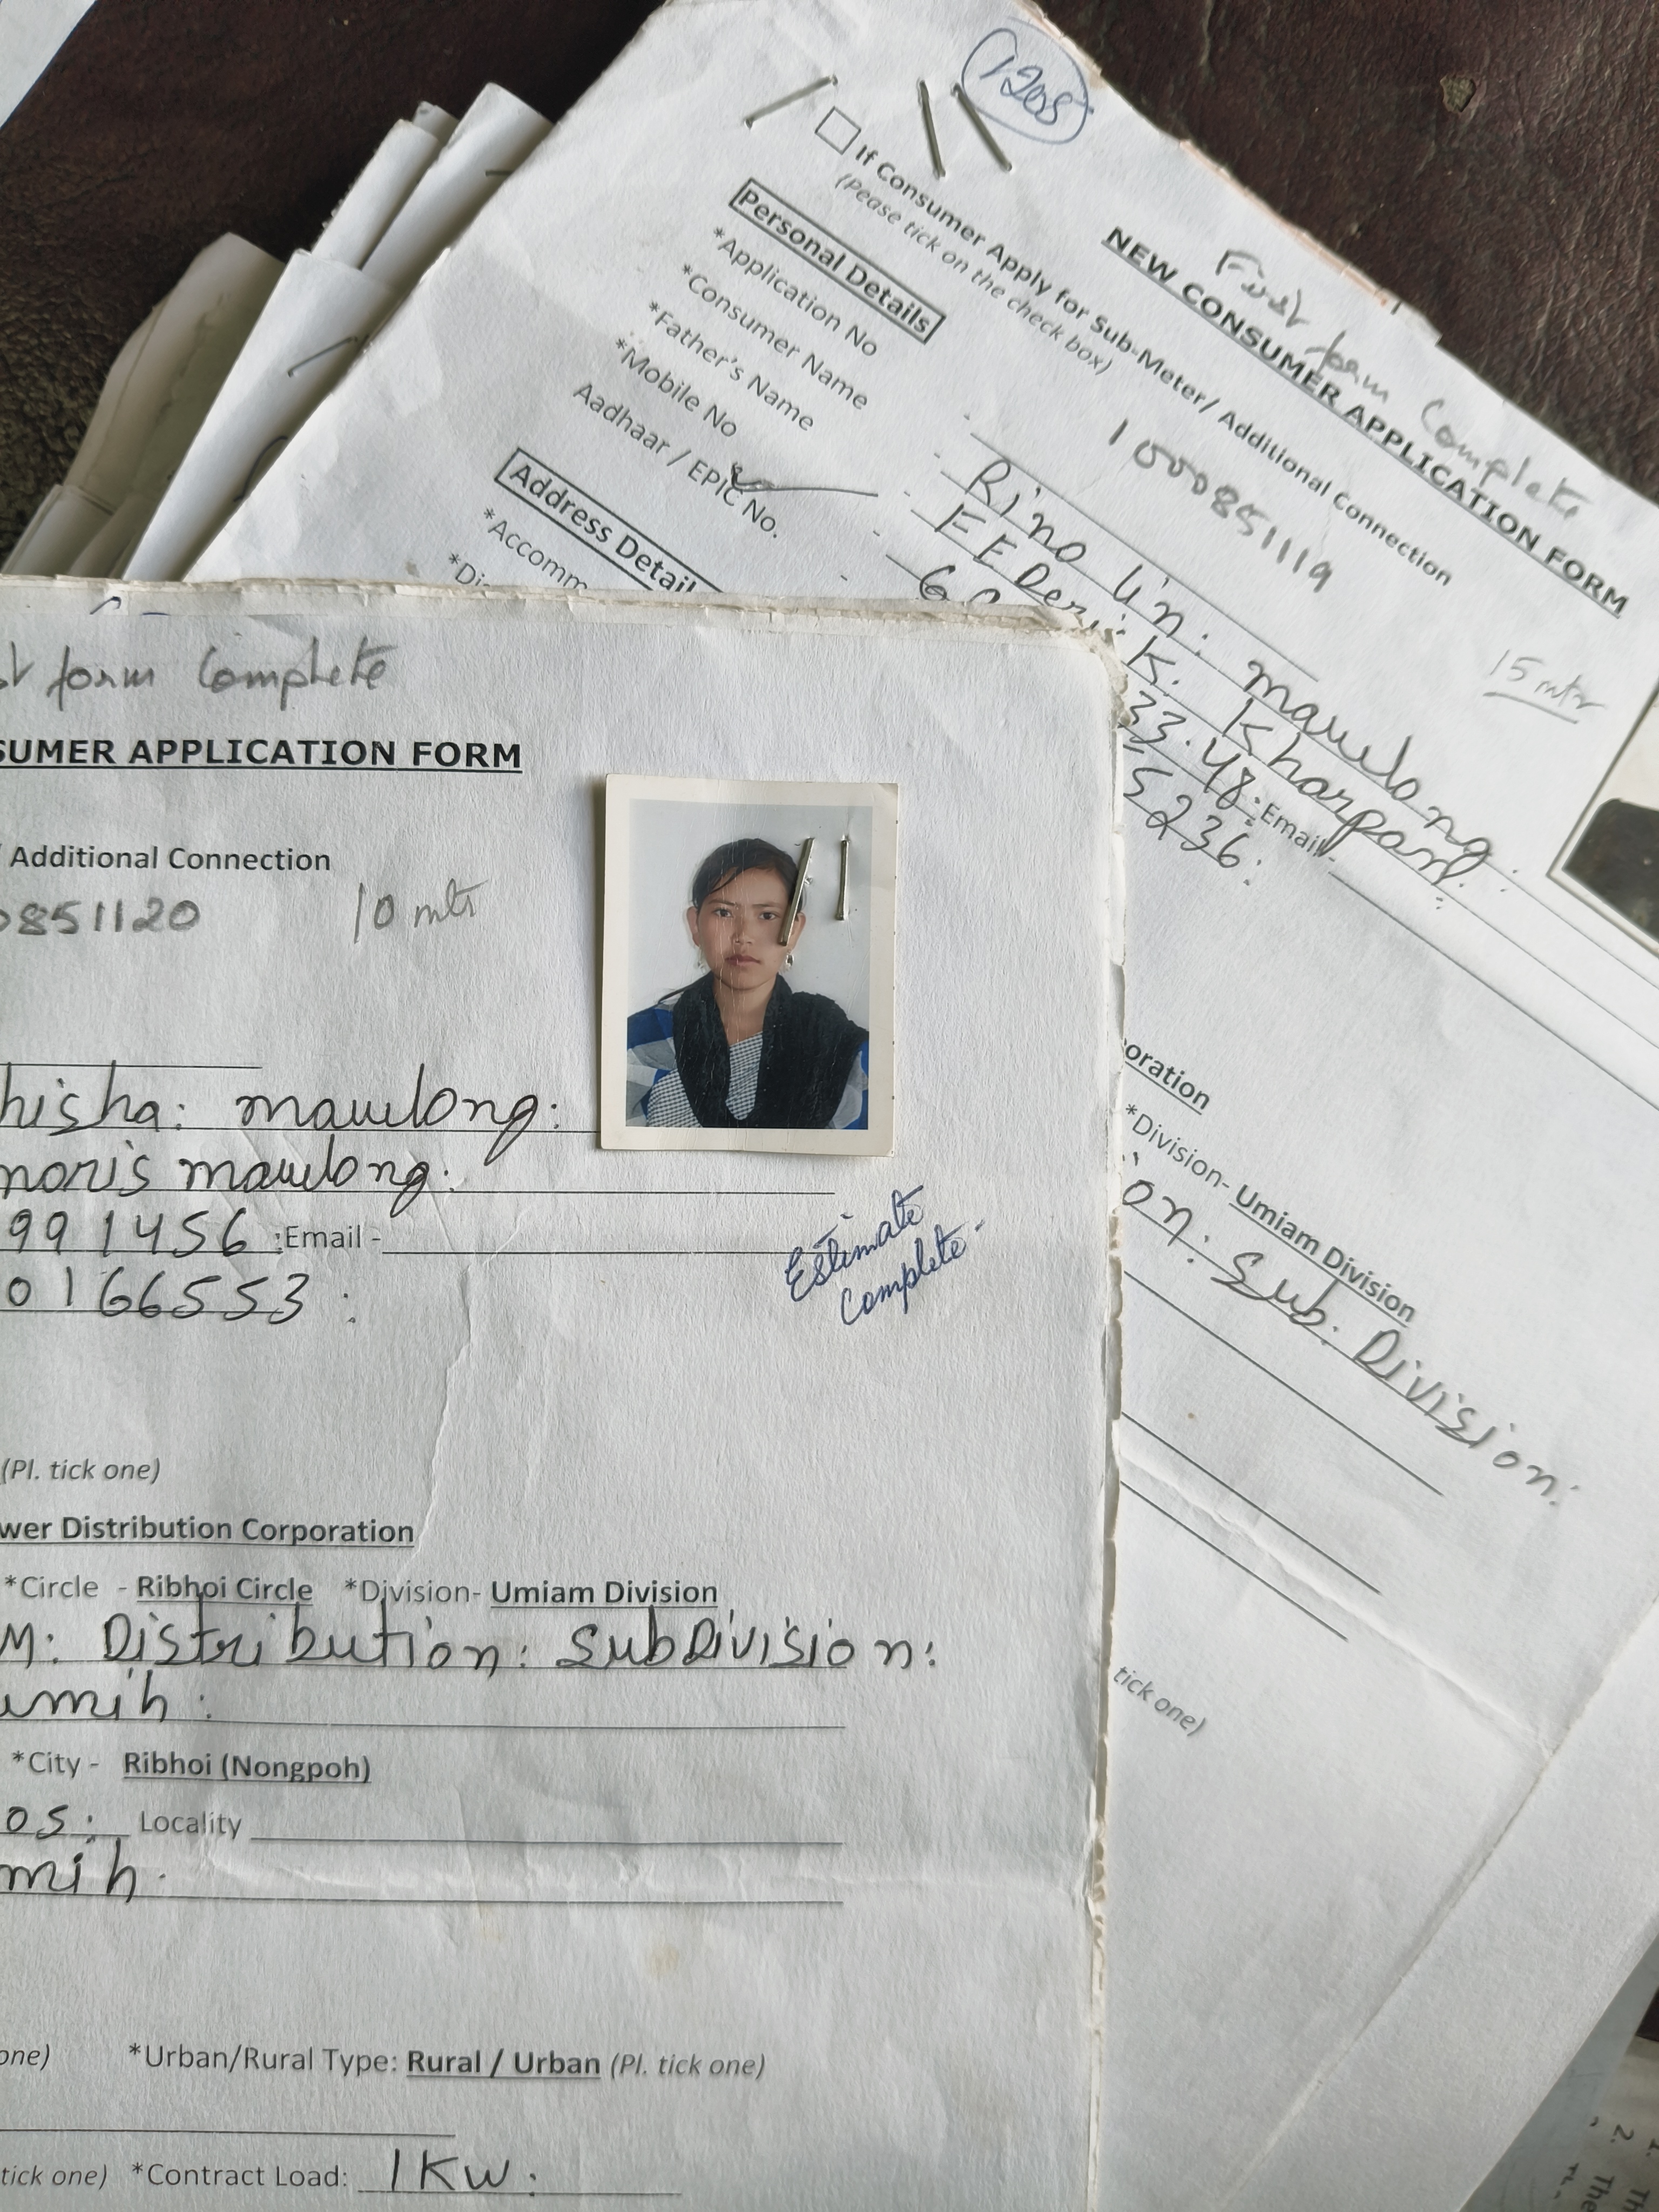 1208
If Consumer Apply for Sub-Meter/ Additional Connection
(Pease tick on the check box)
First form Complete
NEW CONSUMER APPLICATION FORM
1000851119
15 mtr
Personal Details
*Application No
*Consumer Name
Rino lin: mawlong:
*Father's Name
EEDerik K. Kharpan
*Mobile No
33.48: Email-
Aadhaar / EPIC No.
5236:
Address Detail
*Accomm
oration
*Division- Umiam Division
on: Sub. Division:
tick one)
form Complete
SUMER APPLICATION FORM
Additional Connection
0851120
10 mtr
hisha: mawlong:
noris mawlong:
991456 :Email -
0166553 :
Estimate
Complete-
(Pl. tick one)
wer Distribution Corporation
*Circle - Ribhoi Circle *Division- Umiam Division
M: Distribution: SubDivision:
umih:
*City - Ribhoi (Nongpoh)
os: Locality
mih.
one) *Urban/Rural Type: Rural / Urban (Pl. tick one)
tick one) *Contract Load: 1KW: